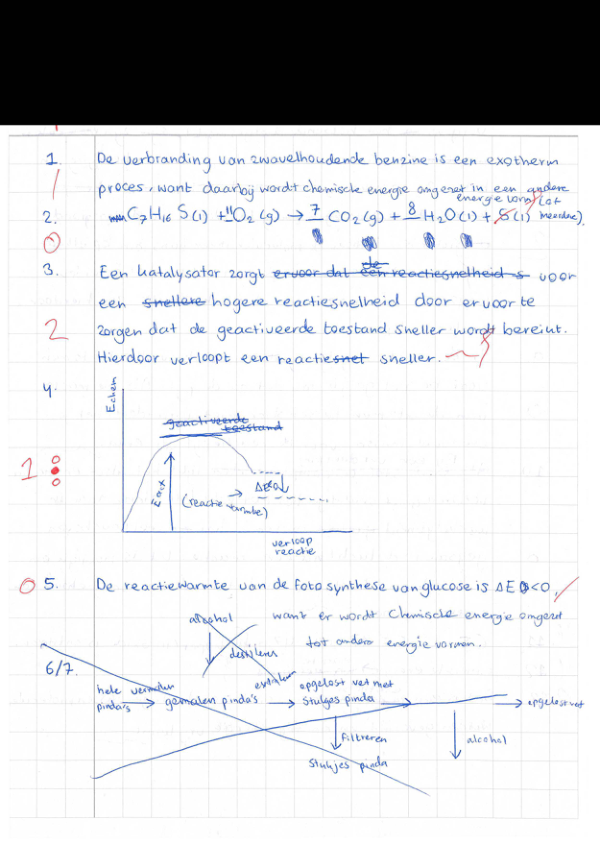 1. De verbranding van zwavelhoudende benzine is een exotherm
proces, want daarbij wordt chemische energie omgezet in een andere
energie vorm (of
meerdere).
2. C7H16 S(l) + 11O2 (g) → 7 CO2(g) + 8 H2O(l) + S(l)
0
3. Een katalysator zorgt ervoor dat de een reactiesnelheid s voor
een snellere hogere reactiesnelheid door ervoor te
2 zorgen dat de geactiveerde toestand sneller wordt bereikt.
Hierdoor verloopt een reactie snel sneller.
4.
Echem
geactiveerde
toestand
1
Eact
(reactiewarmte) → ΔE<0
verloop
reactie
0 5. De reactiewarmte van de fotosynthese van glucose is ΔE <0,
want er wordt Chemische energie omgezet
tot andere energie vormen.
alcohol
destileren
6/7.
hele vermalen
pinda's → gemalen pinda's → stukjes pinda → opgelost vet
opgelost vet met
filtreren
alcohol
stukjes pinda